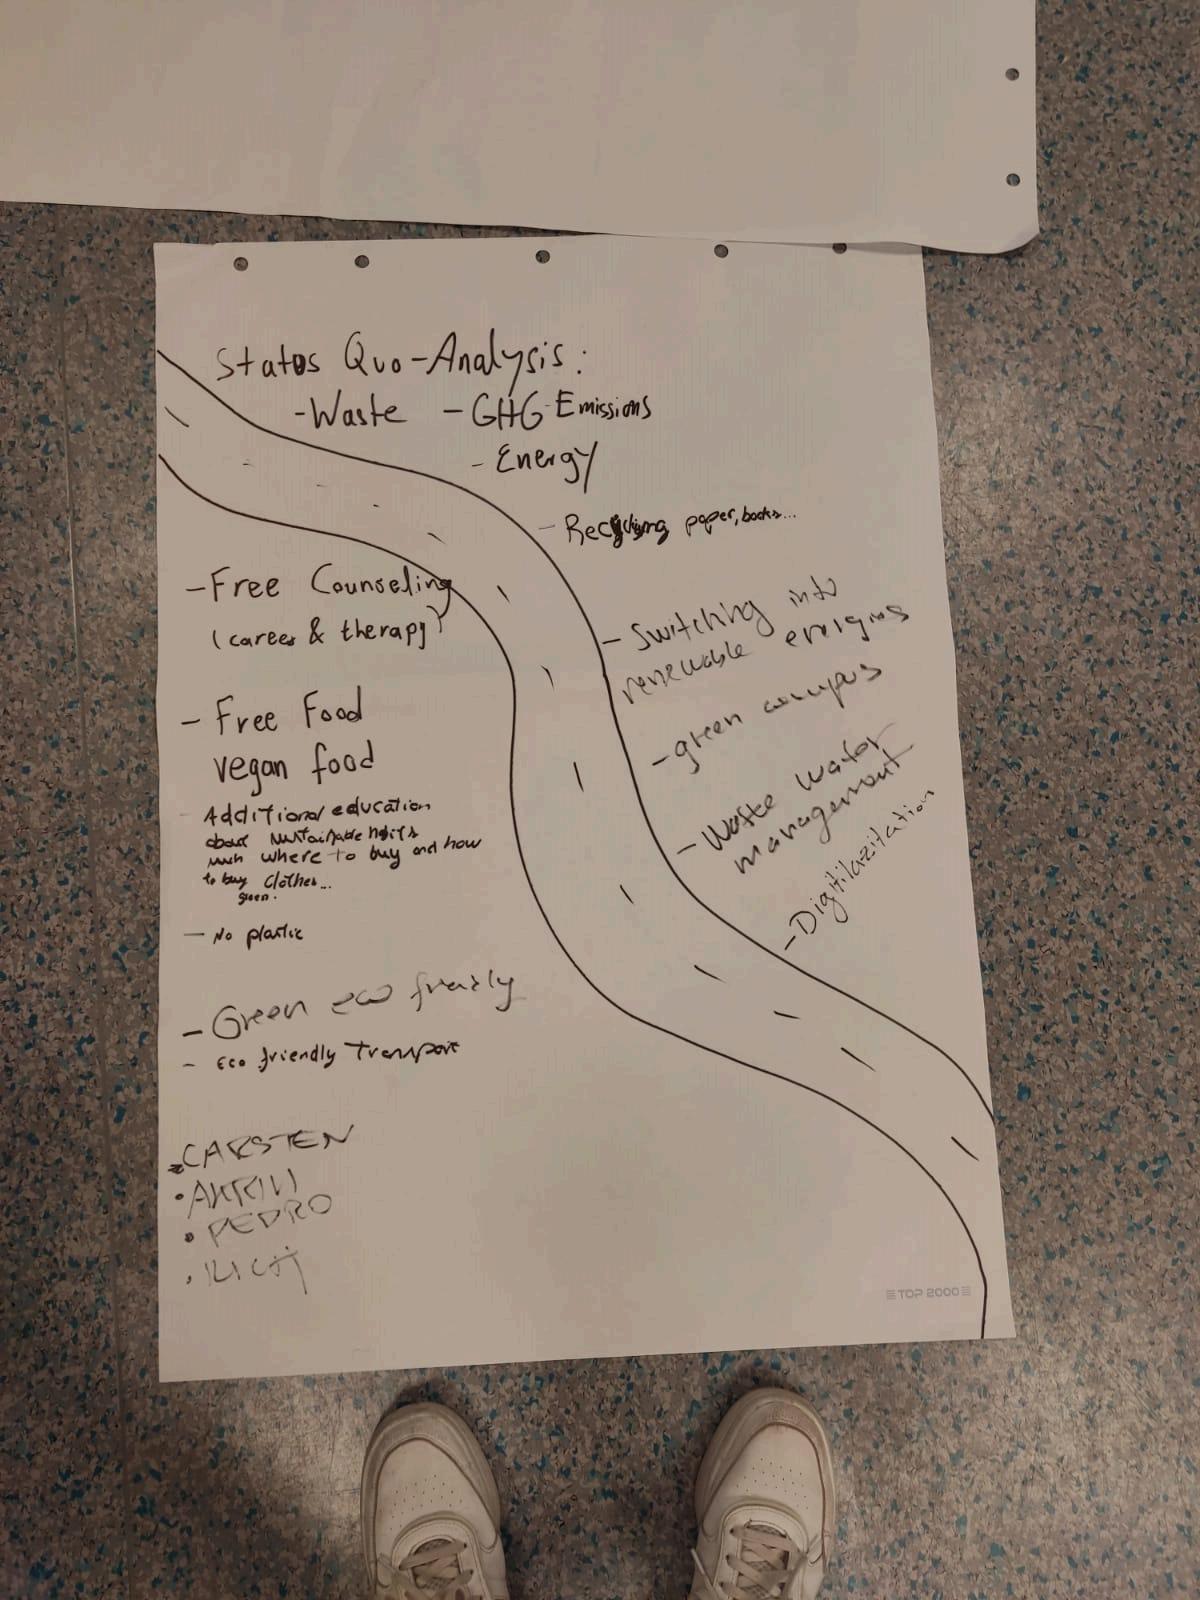 Status Quo-Analysis:
-Waste - GHG-Emissions
- Energy
- Recycling paper, books...
- Free Counseling
(career & therapy)
- Switching into
renewable energies
- green campus
- Free Food
vegan food
- Waste water
management
- Additional education
about sustainable habits
such where to buy and how
to buy clothes...
green.
- Digitilazitation
- No plastic
- Green eco friendly
- Eco friendly Transport
• CARSTEN
• PEDRO
TOP 2000